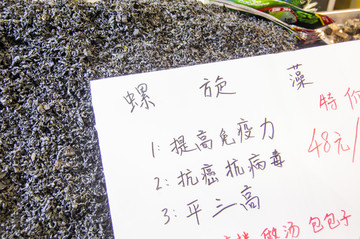 螺旋藻
特价
1:提高免疫力
48元/
2:抗癌抗病毒
3:平三高
做汤 包包子